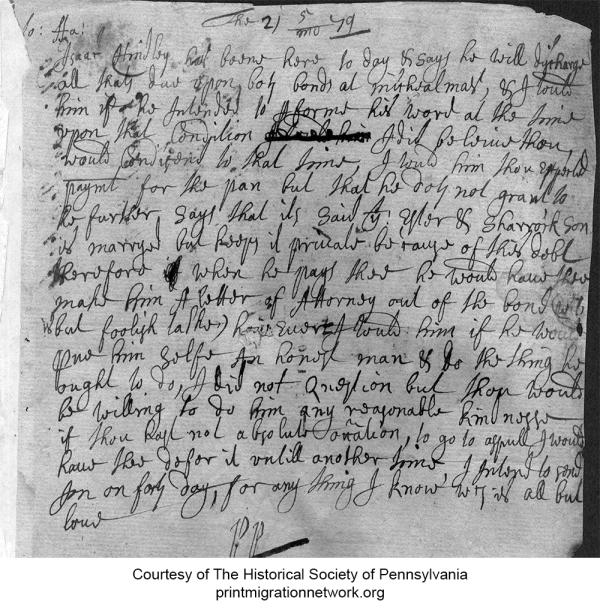 The 21 5/mo 79
Lo: Fra:
Isaac has beene here to day & says he will discharge
all that due upon both bonds at michealmas, & I tould
him if he Intended to performe his word at the time
upon that Condition I did beleive thou
would Condisend to that time, I tould him thou expected
paymt for the pan but that he doth not grant to
he further says that its said Ester & Sharrock Son
is marryed but keeps it private because of this debt
therefore when he pays thee he would have thee
make him A letter of Attorney out of the bond
but foolish talke) howeuer I tould him if he would
prue him selfe An honest man & do the thing he
ought to do, I did not Question but thou would
be willing to do him any reasonable kindnesse
if thou hast not absolute to go to I would
have thee defer it untill another time I Intend to send
Jon on day, for any thing I know wch is all but
love
PP
Courtesy of The Historical Society of Pennsylvania
printmigrationnetwork.org